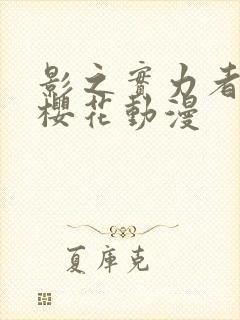 影之實力者
櫻花動漫
夏庫克